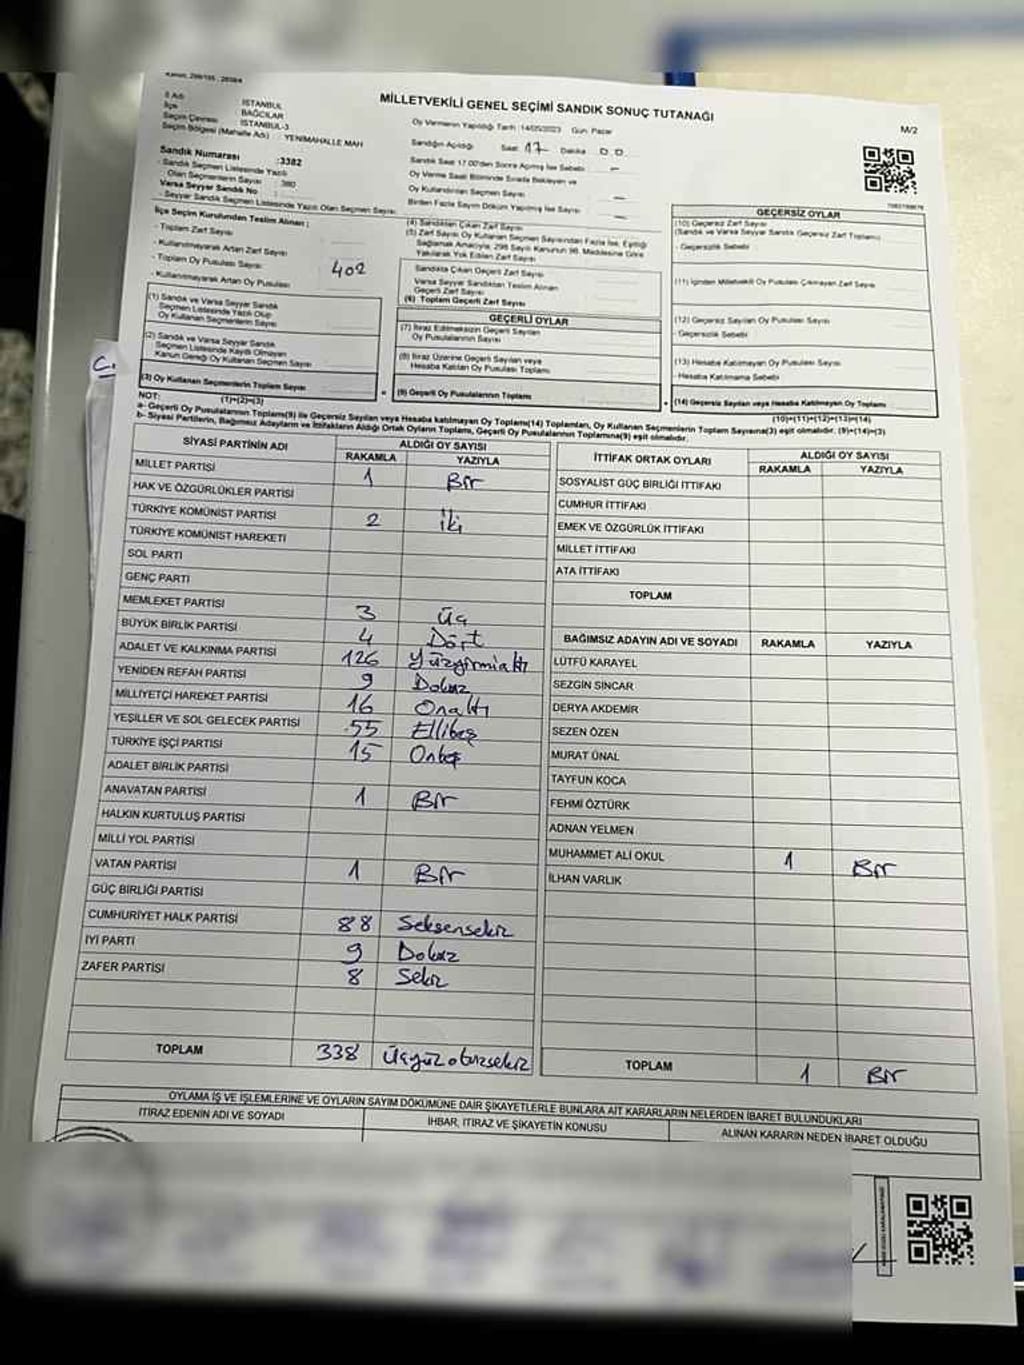 MİLLETVEKİLİ GENEL SEÇİMİ SANDIK SONUÇ TUTANAĞI
M/2
İl Adı : İSTANBUL
İlçe : BAĞCILAR
Seçim Çevresi : İSTANBUL-3
Seçim Bölgesi (Mahalle Adı) : YENİMAHALLE MAH
Oy Vermenin Yapıldığı Tarih : 14/05/2023 Gün: Pazar
Sandığın Açıldığı Saat: 17 Dakika 00
Sandık Saat 17.00'den Sonra Açılmış İse Sebebi : —
Oy Verme Saati Bitiminde Sırada Bekleyen ve
Oy Kullandırılan Seçmen Sayısı : —
Birden Fazla Sayım Döküm Yapılmış İse Sayısı : —
Sandık Numarası :3382
- Sandık Seçmen Listesinde Yazılı
Olan Seçmenlerin Sayısı : 380
Varsa Seyyar Sandık No :
- Seyyar Sandık Seçmen Listesinde Yazılı Olan Seçmen Sayısı:
İlçe Seçim Kurulundan Teslim Alınan ;
- Toplam Zarf Sayısı
- Kullanılmayarak Artan Zarf Sayısı
- Toplam Oy Pusulası Sayısı 402
- Kullanılmayarak Artan Oy Pusulası
(1) Sandık ve Varsa Seyyar Sandık
Seçmen Listesinde Yazılı Olup
Oy Kullanan Seçmenlerin Sayısı
(2) Sandık ve Varsa Seyyar Sandık
Seçmen Listesinde Kayıtlı Olmayan
Kanun Gereği Oy Kullanan Seçmen Sayısı
(3) Oy Kullanan Seçmenlerin Toplam Sayısı
(1)+(2)=(3)
(4) Sandıktan Çıkan Zarf Sayısı
(5) Zarf Sayısı Oy Kullanan Seçmen Sayısından Fazla İse, Eşitliği
Sağlamak Amacıyla, 298 Sayılı Kanunun 98. Maddesine Göre
Yakılarak Yok Edilen Zarf Sayısı
Sandıkta Çıkan Geçerli Zarf Sayısı
Varsa Seyyar Sandıktan Teslim Alınan
Geçerli Zarf Sayısı
(6) Toplam Geçerli Zarf Sayısı
GEÇERLİ OYLAR
(7) İtiraz Edilmeksizin Geçerli Sayılan
Oy Pusulalarının Sayısı
(8) İtiraz Üzerine Geçerli Sayılan veya
Hesaba Katılan Oy Pusulası Toplamı
(9) Geçerli Oy Pusulalarının Toplamı
GEÇERSİZ OYLAR
(10) Geçersiz Zarf Sayısı
(Sandık ve Varsa Seyyar Sandık Geçersiz Zarf Toplamı)
- Geçersizlik Sebebi
(11) İçinden Milletvekili Oy Pusulası Çıkmayan Zarf Sayısı
(12) Geçersiz Sayılan Oy Pusulası Sayısı
- Geçersizlik Sebebi
(13) Hesaba Katılmayan Oy Pusulası Sayısı
- Hesaba Katılmama Sebebi
(14) Geçersiz Sayılan veya Hesaba Katılmayan Oy Pusulası Toplamı
(10)+(11)+(12)+(13)=(14)
NOT:
a- Geçerli Oy Pusulalarının Toplamı(9) ile Geçersiz Sayılan veya Hesaba katılmayan Oy Toplamı(14) Toplamları, Oy Kullanan Seçmenlerin Toplam Sayısına(3) eşit olmalıdır. (9)+(14)=(3)
b- Siyasi Partilerin, Bağımsız Adayların ve İttifakların Aldığı Ortak Oyların Toplamı, Geçerli Oy Pusulalarının Toplamına(9) eşit olmalıdır.
SİYASİ PARTİNİN ADI ALDIĞI OY SAYISI
RAKAMLA YAZIYLA
MİLLET PARTİSİ 1 Bir
HAK VE ÖZGÜRLÜKLER PARTİSİ
TÜRKİYE KOMÜNİST PARTİSİ 2 İki
TÜRKİYE KOMÜNİST HAREKETİ
SOL PARTİ
GENÇ PARTİ
MEMLEKET PARTİSİ 3 Üç
BÜYÜK BİRLİK PARTİSİ 4 Dört
ADALET VE KALKINMA PARTİSİ 126 Yüzyirmialtı
YENİDEN REFAH PARTİSİ 9 Dokuz
MİLLİYETÇİ HAREKET PARTİSİ 16 Onaltı
YEŞİLLER VE SOL GELECEK PARTİSİ 55 Ellibeş
TÜRKİYE İŞÇİ PARTİSİ 15 Onbeş
ADALET BİRLİK PARTİSİ
ANAVATAN PARTİSİ 1 Bir
HALKIN KURTULUŞ PARTİSİ
MİLLİ YOL PARTİSİ
VATAN PARTİSİ 1 Bir
GÜÇ BİRLİĞİ PARTİSİ
CUMHURİYET HALK PARTİSİ 88 Seksensekiz
İYİ PARTİ 9 Dokuz
ZAFER PARTİSİ 8 Sekiz
TOPLAM 338 Üçyüzotuzsekiz
İTTİFAK ORTAK OYLARI ALDIĞI OY SAYISI
RAKAMLA YAZIYLA
SOSYALİST GÜÇ BİRLİĞİ İTTİFAKI
CUMHUR İTTİFAKI
EMEK VE ÖZGÜRLÜK İTTİFAKI
MİLLET İTTİFAKI
ATA İTTİFAKI
TOPLAM
BAĞIMSIZ ADAYIN ADI VE SOYADI RAKAMLA YAZIYLA
LÜTFÜ KARAYEL
SEZGİN SİNCAR
DERYA AKDEMİR
SEZEN ÖZEN
MURAT ÜNAL
TAYFUN KOCA
FEHMİ ÖZTÜRK
ADNAN YELMEN
MUHAMMET ALİ OKUL 1 Bir
İLHAN VARLIK
TOPLAM 1 Bir
OYLAMA İŞ VE İŞLEMLERİNE VE OYLARIN SAYIM DÖKÜMÜNE DAİR ŞİKAYETLERLE BUNLARA AİT KARARLARIN NELERDEN İBARET BULUNDUKLARI
İTİRAZ EDENİN ADI VE SOYADI İHBAR, İTİRAZ VE ŞİKAYETİN KONUSU ALINAN KARARIN NEDEN İBARET OLDUĞU